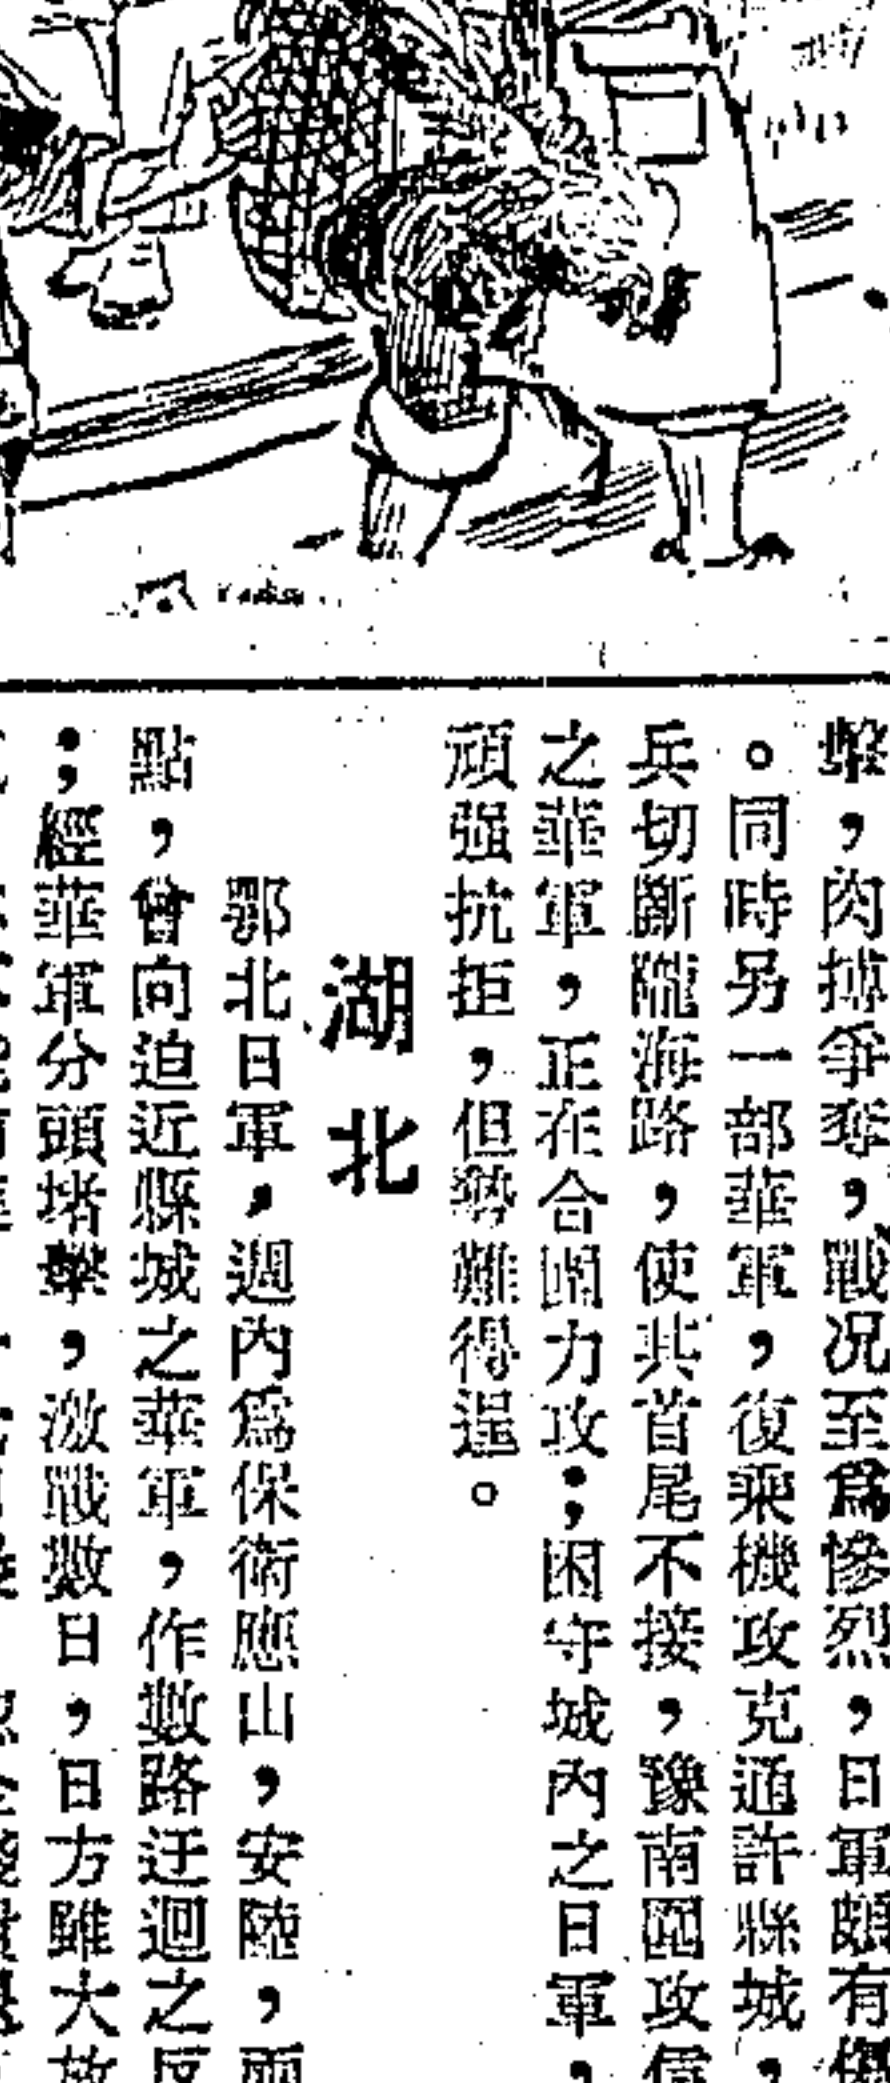 擊，肉搏爭奪，戰况至爲慘烈，日軍頗有傷
。同時另一部華軍，復乘機攻克通許縣城，
兵切斷隴海路，使其首尾不接，豫南圍攻信
之華軍，正在合圍力攻；困守城內之日軍，
頑强抗拒，但勢難得逞。
湖北
鄂北日軍，週內爲保衛應山，安陸，兩
點，曾向迫近縣城之華軍，作數路迂迴之反
；經華軍分頭堵擊，激戰數日，日方雖大放